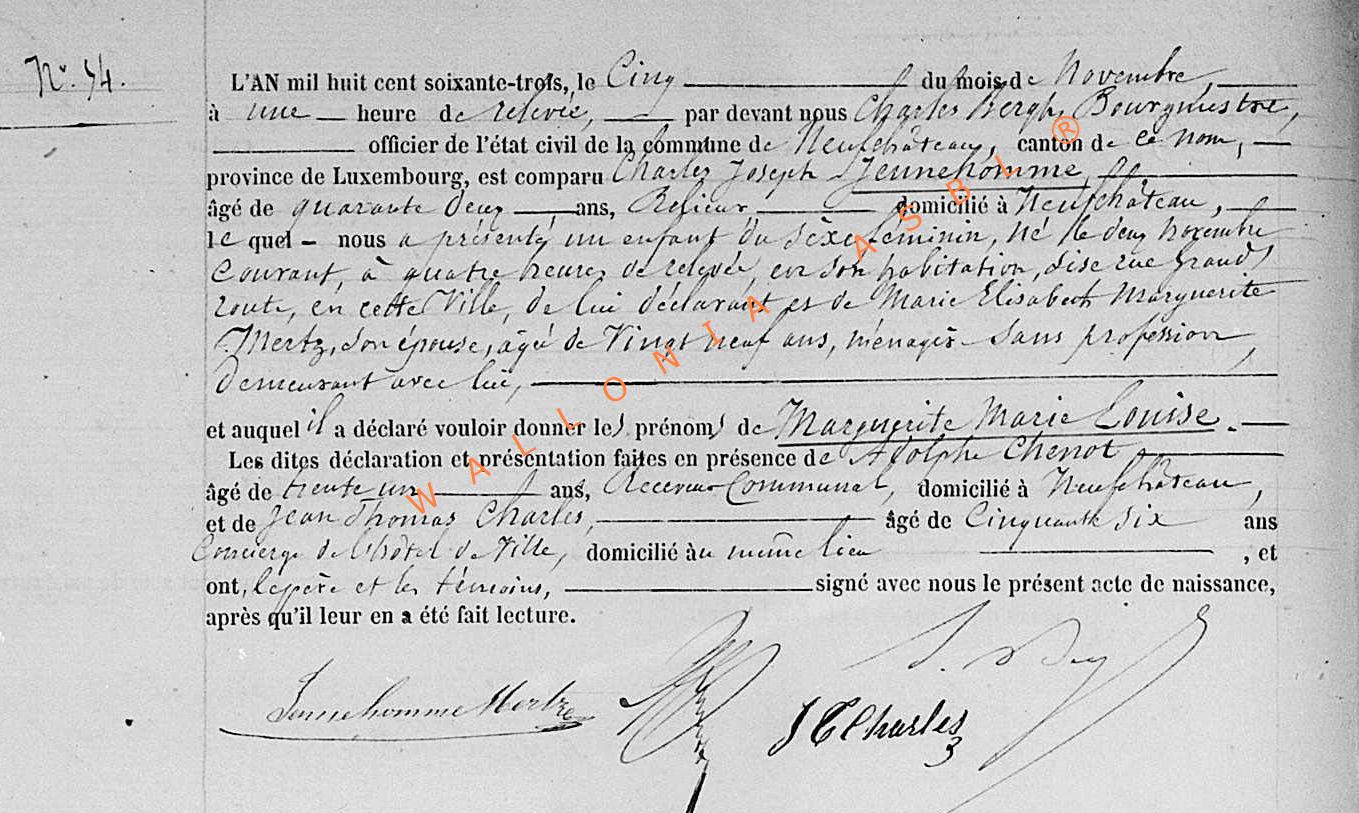 N° 54.
L'AN mil huit cent soixante-trois, le Cinq du mois de Novembre,
à une heure de relevée, par devant nous Charles Bergh, Bourgmestre,
officier de l'état civil de la commune de Neufchâteau, canton de ce nom,
province de Luxembourg, est comparu Charles Joseph Jeunehomme,
âgé de quarante deux ans, Relieur, domicilié à Neufchâteau,
le quel nous a présenté un enfant du sèxe feminin, né le deux novembre
courant, à quatre heures de relevée, en son habitation, sise rue grand
route, en cette Ville, de lui déclarant et de Marie Elisabeth Marguerite
Mertz, son épouse, âgée de Vingt neuf ans, ménagère sans profession,
demeurant avec lui,
et auquel il a déclaré vouloir donner les prénoms de Marguerite Marie Louise.
Les dites déclaration et présentation faites en présence de Adolphe Chenot,
âgé de trente un ans, Receveur Communal, domicilié à Neufchâteau,
et de Jean Thomas Charles, âgé de Cinquante six ans
Concierge de l'hôtel de Ville, domicilié àu même lieu , et
ont, le père et les témoins, signé avec nous le présent acte de naissance,
après qu'il leur en a été fait lecture.
Jeunehomme Mertz
J T Charles
WALLONIA ASBL ®